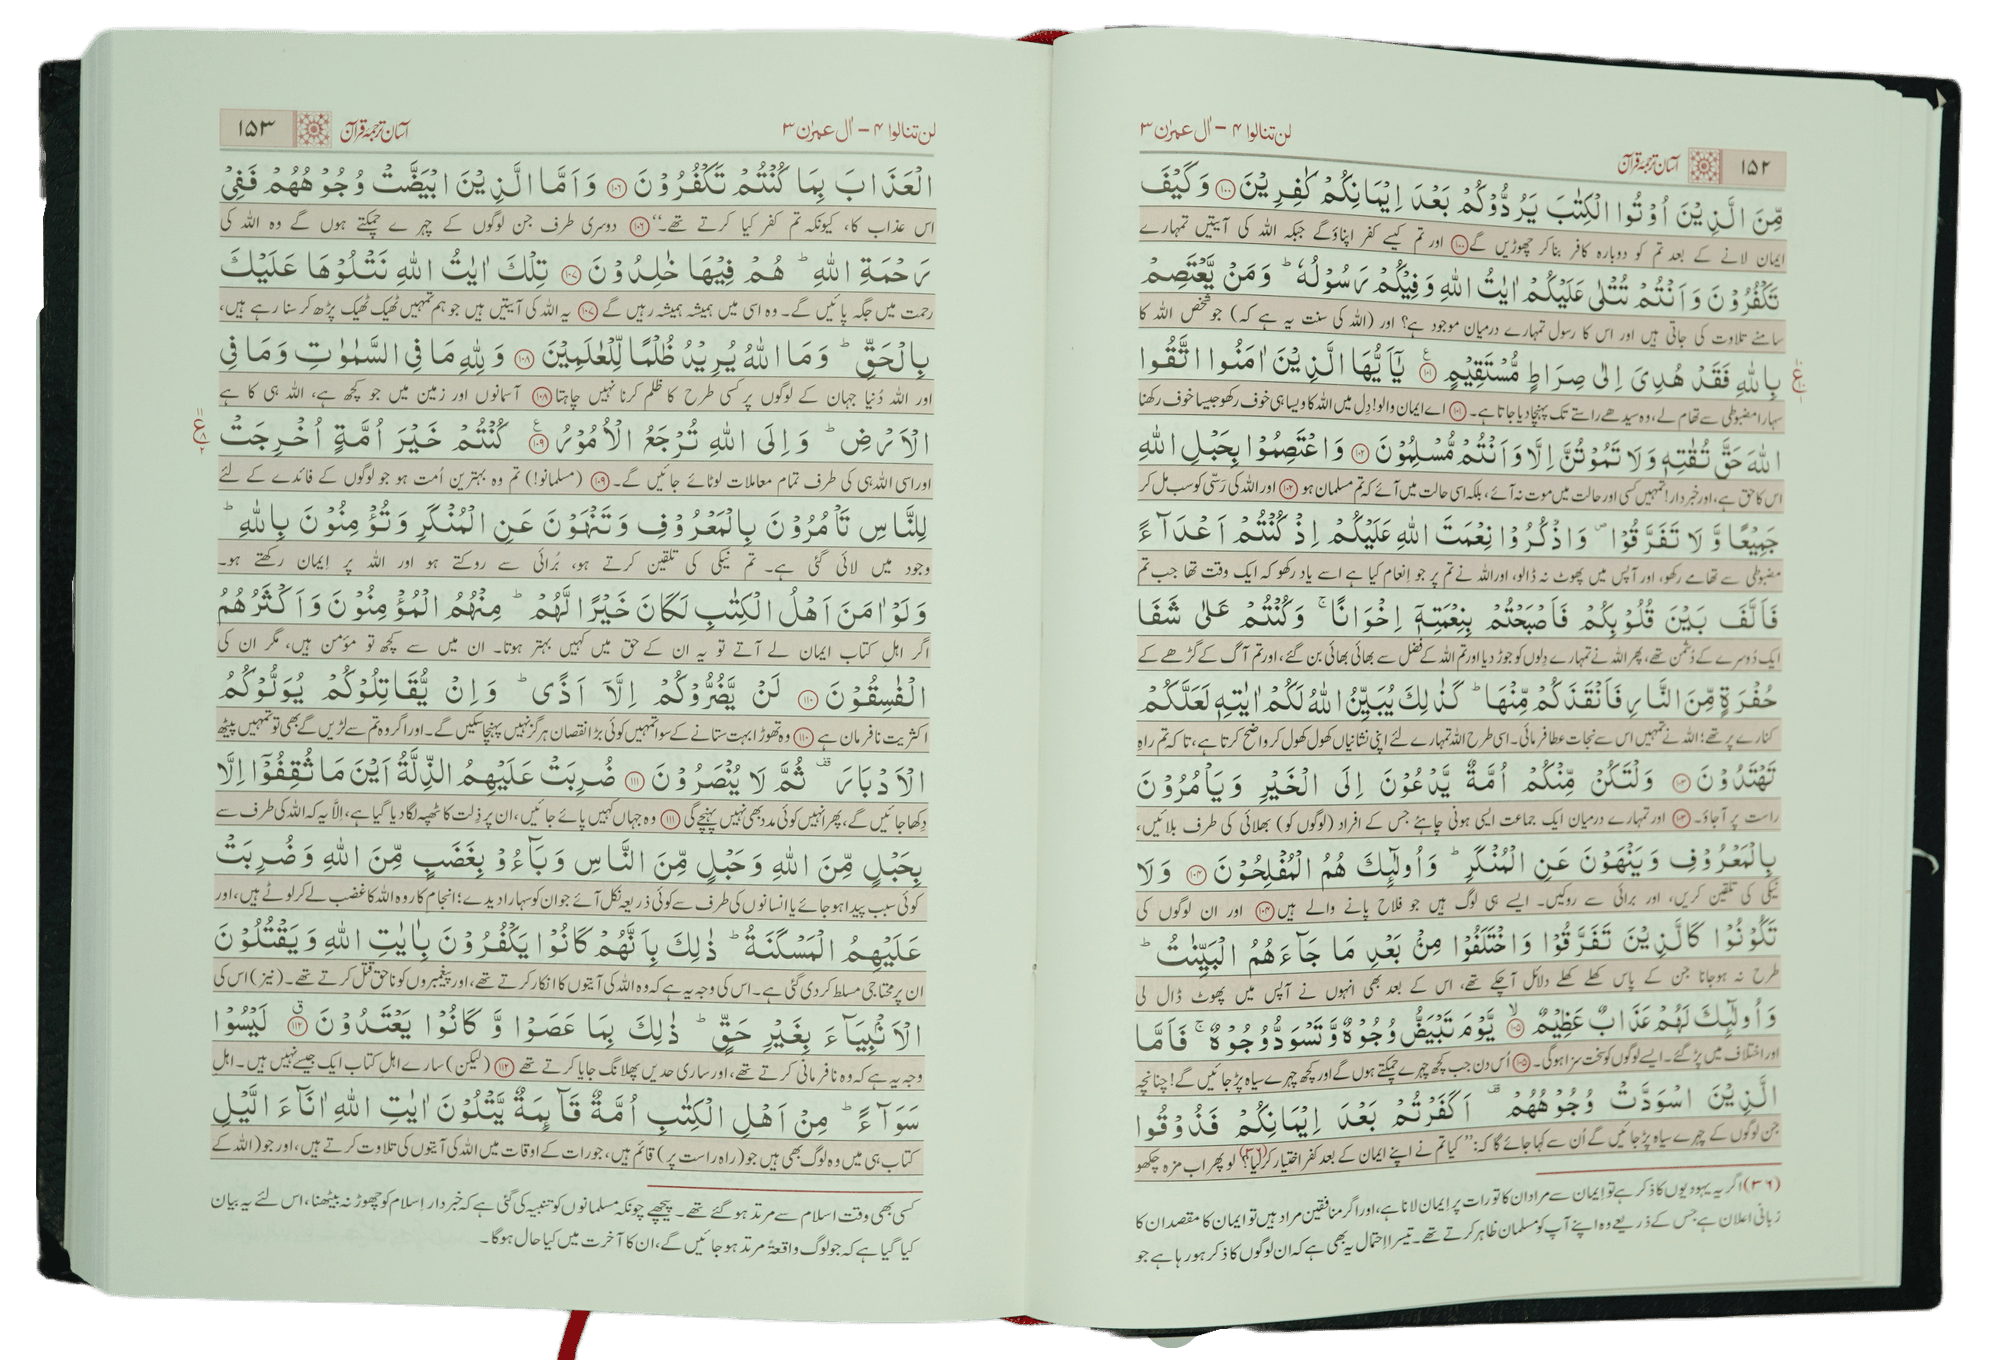 ۱۵۲ آسان ترجمۂ قرآن لن تنالوا ۴ – اٰل عمرٰن ۳
مِّنَ الَّذِيْنَ اُوْتُوا الْكِتٰبَ يَرُدُّوْكُمْ بَعْدَ اِيْمَانِكُمْ كٰفِرِيْنَ ۝۱۰۰ وَكَيْفَ
ایمان لانے کے بعد تم کو دوبارہ کافر بنا کر چھوڑیں گے ﴿۱۰۰﴾ اور تم کیسے کفر اپناؤ گے جبکہ اللہ کی آیتیں تمہارے
تَكْفُرُوْنَ وَاَنْتُمْ تُتْلٰى عَلَيْكُمْ اٰيٰتُ اللّٰهِ وَفِيْكُمْ رَسُوْلُهٗ ؕ وَمَنْ يَّعْتَصِمْ
سامنے تلاوت کی جاتی ہیں اور اس کا رسول تمہارے درمیان موجود ہے؟ اور (اللہ کی سنت یہ ہے کہ) جو شخص اللہ کا
بِاللّٰهِ فَقَدْ هُدِىَ اِلٰى صِرَاطٍ مُّسْتَقِيْمٍ ۝۱۰۱ يٰۤاَيُّهَا الَّذِيْنَ اٰمَنُوا اتَّقُوا
سہارا مضبوطی سے تھام لے، وہ سیدھے راستے تک پہنچا دیا جاتا ہے۔ ﴿۱۰۱﴾ اے ایمان والو! دِل میں اللہ کا ویسا ہی خوف رکھو جیسا خوف رکھنا
اللّٰهَ حَقَّ تُقٰتِهٖ وَلَا تَمُوْتُنَّ اِلَّا وَاَنْتُمْ مُّسْلِمُوْنَ ۝۱۰۲ وَاعْتَصِمُوْا بِحَبْلِ اللّٰهِ
اس کا حق ہے، اور خبردار! تمہیں کسی اور حالت میں موت نہ آئے، بلکہ اسی حالت میں آئے کہ تم مسلمان ہو ﴿۱۰۲﴾ اور اللہ کی رَسّی کو سب مل کر
جَمِيْعًا وَّلَا تَفَرَّقُوْا ۪ وَاذْكُرُوْا نِعْمَتَ اللّٰهِ عَلَيْكُمْ اِذْ كُنْتُمْ اَعْدَآءً
مضبوطی سے تھامے رکھو، اور آپس میں پھوٹ نہ ڈالو، اور اللہ نے تم پر جو اِنعام کیا ہے اسے یاد رکھو کہ ایک وقت تھا جب تم
فَاَلَّفَ بَيْنَ قُلُوْبِكُمْ فَاَصْبَحْتُمْ بِنِعْمَتِهٖۤ اِخْوَانًا ۚ وَكُنْتُمْ عَلٰى شَفَا
ایک دُوسرے کے دُشمن تھے، پھر اللہ نے تمہارے دِلوں کو جوڑ دیا اور تم اللہ کے فضل سے بھائی بھائی بن گئے، اور تم آگ کے گڑھے کے
حُفْرَةٍ مِّنَ النَّارِ فَاَنْقَذَكُمْ مِّنْهَا ؕ كَذٰلِكَ يُبَيِّنُ اللّٰهُ لَكُمْ اٰيٰتِهٖ لَعَلَّكُمْ
کنارے پر تھے؛ اللہ نے تمہیں اس سے نجات عطا فرمائی۔ اسی طرح اللہ تمہارے لئے اپنی نشانیاں کھول کھول کر واضح کرتا ہے، تاکہ تم راہِ
تَهْتَدُوْنَ ۝۱۰۳ وَلْتَكُنْ مِّنْكُمْ اُمَّةٌ يَّدْعُوْنَ اِلَى الْخَيْرِ وَيَاْمُرُوْنَ
راست پر آجاؤ۔ ﴿۱۰۳﴾ اور تمہارے درمیان ایک جماعت ایسی ہونی چاہئے جس کے افراد (لوگوں کو) بھلائی کی طرف بلائیں،
بِالْمَعْرُوْفِ وَيَنْهَوْنَ عَنِ الْمُنْكَرِ ؕ وَاُولٰٓئِكَ هُمُ الْمُفْلِحُوْنَ ۝۱۰۴ وَلَا
نیکی کی تلقین کریں، اور برائی سے روکیں۔ ایسے ہی لوگ ہیں جو فلاح پانے والے ہیں ﴿۱۰۴﴾ اور ان لوگوں کی
تَكُوْنُوْا كَالَّذِيْنَ تَفَرَّقُوْا وَاخْتَلَفُوْا مِنْۢ بَعْدِ مَا جَآءَهُمُ الْبَيِّنٰتُ ؕ
طرح نہ ہوجانا جن کے پاس کھلے کھلے دلائل آچکے تھے، اس کے بعد بھی انہوں نے آپس میں پھوٹ ڈال لی
وَاُولٰٓئِكَ لَهُمْ عَذَابٌ عَظِيْمٌ ۝۱۰۵ يَّوْمَ تَبْيَضُّ وُجُوْهٌ وَّتَسْوَدُّ وُجُوْهٌ ۚ فَاَمَّا
اور اختلاف میں پڑ گئے۔ ایسے لوگوں کو سخت سزا ہوگی۔ ﴿۱۰۵﴾ اُس دن جب کچھ چہرے چمکتے ہوں گے اور کچھ چہرے سیاہ پڑ جائیں گے! چنانچہ
الَّذِيْنَ اسْوَدَّتْ وُجُوْهُهُمْ ۫ اَكَفَرْتُمْ بَعْدَ اِيْمَانِكُمْ فَذُوْقُوا
جن لوگوں کے چہرے سیاہ پڑ جائیں گے اُن سے کہا جائے گا کہ: ’’کیا تم نے اپنے ایمان کے بعد کفر اختیار کرلیا؟ (۳۶) لو پھر اب مزہ چکھو
(۳۶) اگر یہ یہودیوں کا ذکر ہے تو اِیمان سے مراد ان کا تورات پر اِیمان لانا ہے، اور اگر منافقین مراد ہیں تو ایمان کا مقصد ان کا
زبانی اعلان ہے جس کے ذریعے وہ اپنے آپ کو مسلمان ظاہر کرتے تھے۔ تیسرا اِحتمال یہ بھی ہے کہ ان لوگوں کا ذکر ہو رہا ہے جو
لن تنالوا ۴ – اٰل عمرٰن ۳ آسان ترجمۂ قرآن ۱۵۳
الْعَذَابَ بِمَا كُنْتُمْ تَكْفُرُوْنَ ۝۱۰۶ وَاَمَّا الَّذِيْنَ ابْيَضَّتْ وُجُوْهُهُمْ فَفِىْ
اس عذاب کا، کیونکہ تم کفر کیا کرتے تھے۔‘‘ ﴿۱۰۶﴾ دوسری طرف جن لوگوں کے چہرے چمکتے ہوں گے وہ اللہ کی
رَحْمَةِ اللّٰهِ ؕ هُمْ فِيْهَا خٰلِدُوْنَ ۝۱۰۷ تِلْكَ اٰيٰتُ اللّٰهِ نَتْلُوْهَا عَلَيْكَ
رحمت میں جگہ پائیں گے۔ وہ اسی میں ہمیشہ ہمیشہ رہیں گے ﴿۱۰۷﴾ یہ اللہ کی آیتیں ہیں جو ہم تمہیں ٹھیک ٹھیک پڑھ کر سنا رہے ہیں،
بِالْحَقِّ ؕ وَمَا اللّٰهُ يُرِيْدُ ظُلْمًا لِّلْعٰلَمِيْنَ ۝۱۰۸ وَلِلّٰهِ مَا فِى السَّمٰوٰتِ وَمَا فِى
اور اللہ دُنیا جہان کے لوگوں پر کسی طرح کا ظلم کرنا نہیں چاہتا ﴿۱۰۸﴾ آسمانوں اور زمین میں جو کچھ ہے، اللہ ہی کا ہے
الْاَرْضِ ؕ وَاِلَى اللّٰهِ تُرْجَعُ الْاُمُوْرُ ۝۱۰۹ كُنْتُمْ خَيْرَ اُمَّةٍ اُخْرِجَتْ
اور اسی اللہ ہی کی طرف تمام معاملات لوٹائے جائیں گے۔ ﴿۱۰۹﴾ (مسلمانو!) تم وہ بہترین اُمت ہو جو لوگوں کے فائدے کے لئے
لِلنَّاسِ تَاْمُرُوْنَ بِالْمَعْرُوْفِ وَتَنْهَوْنَ عَنِ الْمُنْكَرِ وَتُؤْمِنُوْنَ بِاللّٰهِ ؕ
وجود میں لائی گئی ہے۔ تم نیکی کی تلقین کرتے ہو، بُرائی سے روکتے ہو اور اللہ پر اِیمان رکھتے ہو۔
وَلَوْ اٰمَنَ اَهْلُ الْكِتٰبِ لَكَانَ خَيْرًا لَّهُمْ ؕ مِنْهُمُ الْمُؤْمِنُوْنَ وَاَكْثَرُهُمُ
اگر اہلِ کتاب ایمان لے آتے تو یہ ان کے حق میں کہیں بہتر ہوتا۔ ان میں سے کچھ تو مؤمن ہیں، مگر ان کی
الْفٰسِقُوْنَ ۝۱۱۰ لَنْ يَّضُرُّوْكُمْ اِلَّاۤ اَذًى ؕ وَاِنْ يُّقَاتِلُوْكُمْ يُوَلُّوْكُمُ
اکثریت نافرمان ہے ﴿۱۱۰﴾ وہ تھوڑا بہت ستانے کے سوا تمہیں کوئی بڑا نقصان ہرگز نہیں پہنچا سکیں گے۔ اور اگر وہ تم سے لڑیں گے بھی تو تمہیں پیٹھ
الْاَدْبَارَ ۫ ثُمَّ لَا يُنْصَرُوْنَ ۝۱۱۱ ضُرِبَتْ عَلَيْهِمُ الذِّلَّةُ اَيْنَ مَا ثُقِفُوْۤا اِلَّا
دِکھا جائیں گے، پھر انہیں کوئی مدد بھی نہیں پہنچے گی ﴿۱۱۱﴾ وہ جہاں کہیں پائے جائیں، ان پر ذِلت کا ٹھپہ لگا دیا گیا ہے، اِلَّا یہ کہ اللہ کی طرف سے
بِحَبْلٍ مِّنَ اللّٰهِ وَحَبْلٍ مِّنَ النَّاسِ وَبَآءُوْ بِغَضَبٍ مِّنَ اللّٰهِ وَضُرِبَتْ
کوئی سبب پیدا ہو جائے یا انسانوں کی طرف سے کوئی ذریعہ نکل آئے جو ان کو سہارا دیدے؛ انجام کار وہ اللہ کا غضب لے کر لوٹے ہیں، اور
عَلَيْهِمُ الْمَسْكَنَةُ ؕ ذٰلِكَ بِاَنَّهُمْ كَانُوْا يَكْفُرُوْنَ بِاٰيٰتِ اللّٰهِ وَيَقْتُلُوْنَ
ان پر محتاجی مسلط کر دی گئی ہے۔ اس کی وجہ یہ ہے کہ وہ اللہ کی آیتوں کا انکار کرتے تھے، اور پیغمبروں کو ناحق قتل کرتے تھے۔ (نیز) اس کی
الْاَنْۢبِيَآءَ بِغَيْرِ حَقٍّ ؕ ذٰلِكَ بِمَا عَصَوْا وَّكَانُوْا يَعْتَدُوْنَ ۝۱۱۲ لَيْسُوْا
وجہ یہ ہے کہ وہ نافرمانی کرتے تھے، اور ساری حدیں پھلانگ جایا کرتے تھے ﴿۱۱۲﴾ (لیکن) سارے اہلِ کتاب ایک جیسے نہیں ہیں۔ اہلِ
سَوَآءً ؕ مِنْ اَهْلِ الْكِتٰبِ اُمَّةٌ قَآئِمَةٌ يَّتْلُوْنَ اٰيٰتِ اللّٰهِ اٰنَآءَ الَّيْلِ
کتاب ہی میں وہ لوگ بھی ہیں جو (راہِ راست پر) قائم ہیں، جو رات کے اوقات میں اللہ کی آیتوں کی تلاوت کرتے ہیں، اور جو (اللہ کے
کسی بھی وقت اسلام سے مرتد ہو گئے تھے۔ پیچھے چونکہ مسلمانوں کو تنبیہ کی گئی ہے کہ خبردار اِسلام کو چھوڑ نہ بیٹھنا، اس لئے یہ بیان
کیا گیا ہے کہ جو لوگ واقعۃً مرتد ہو جائیں گے، ان کا آخرت میں کیا حال ہوگا۔